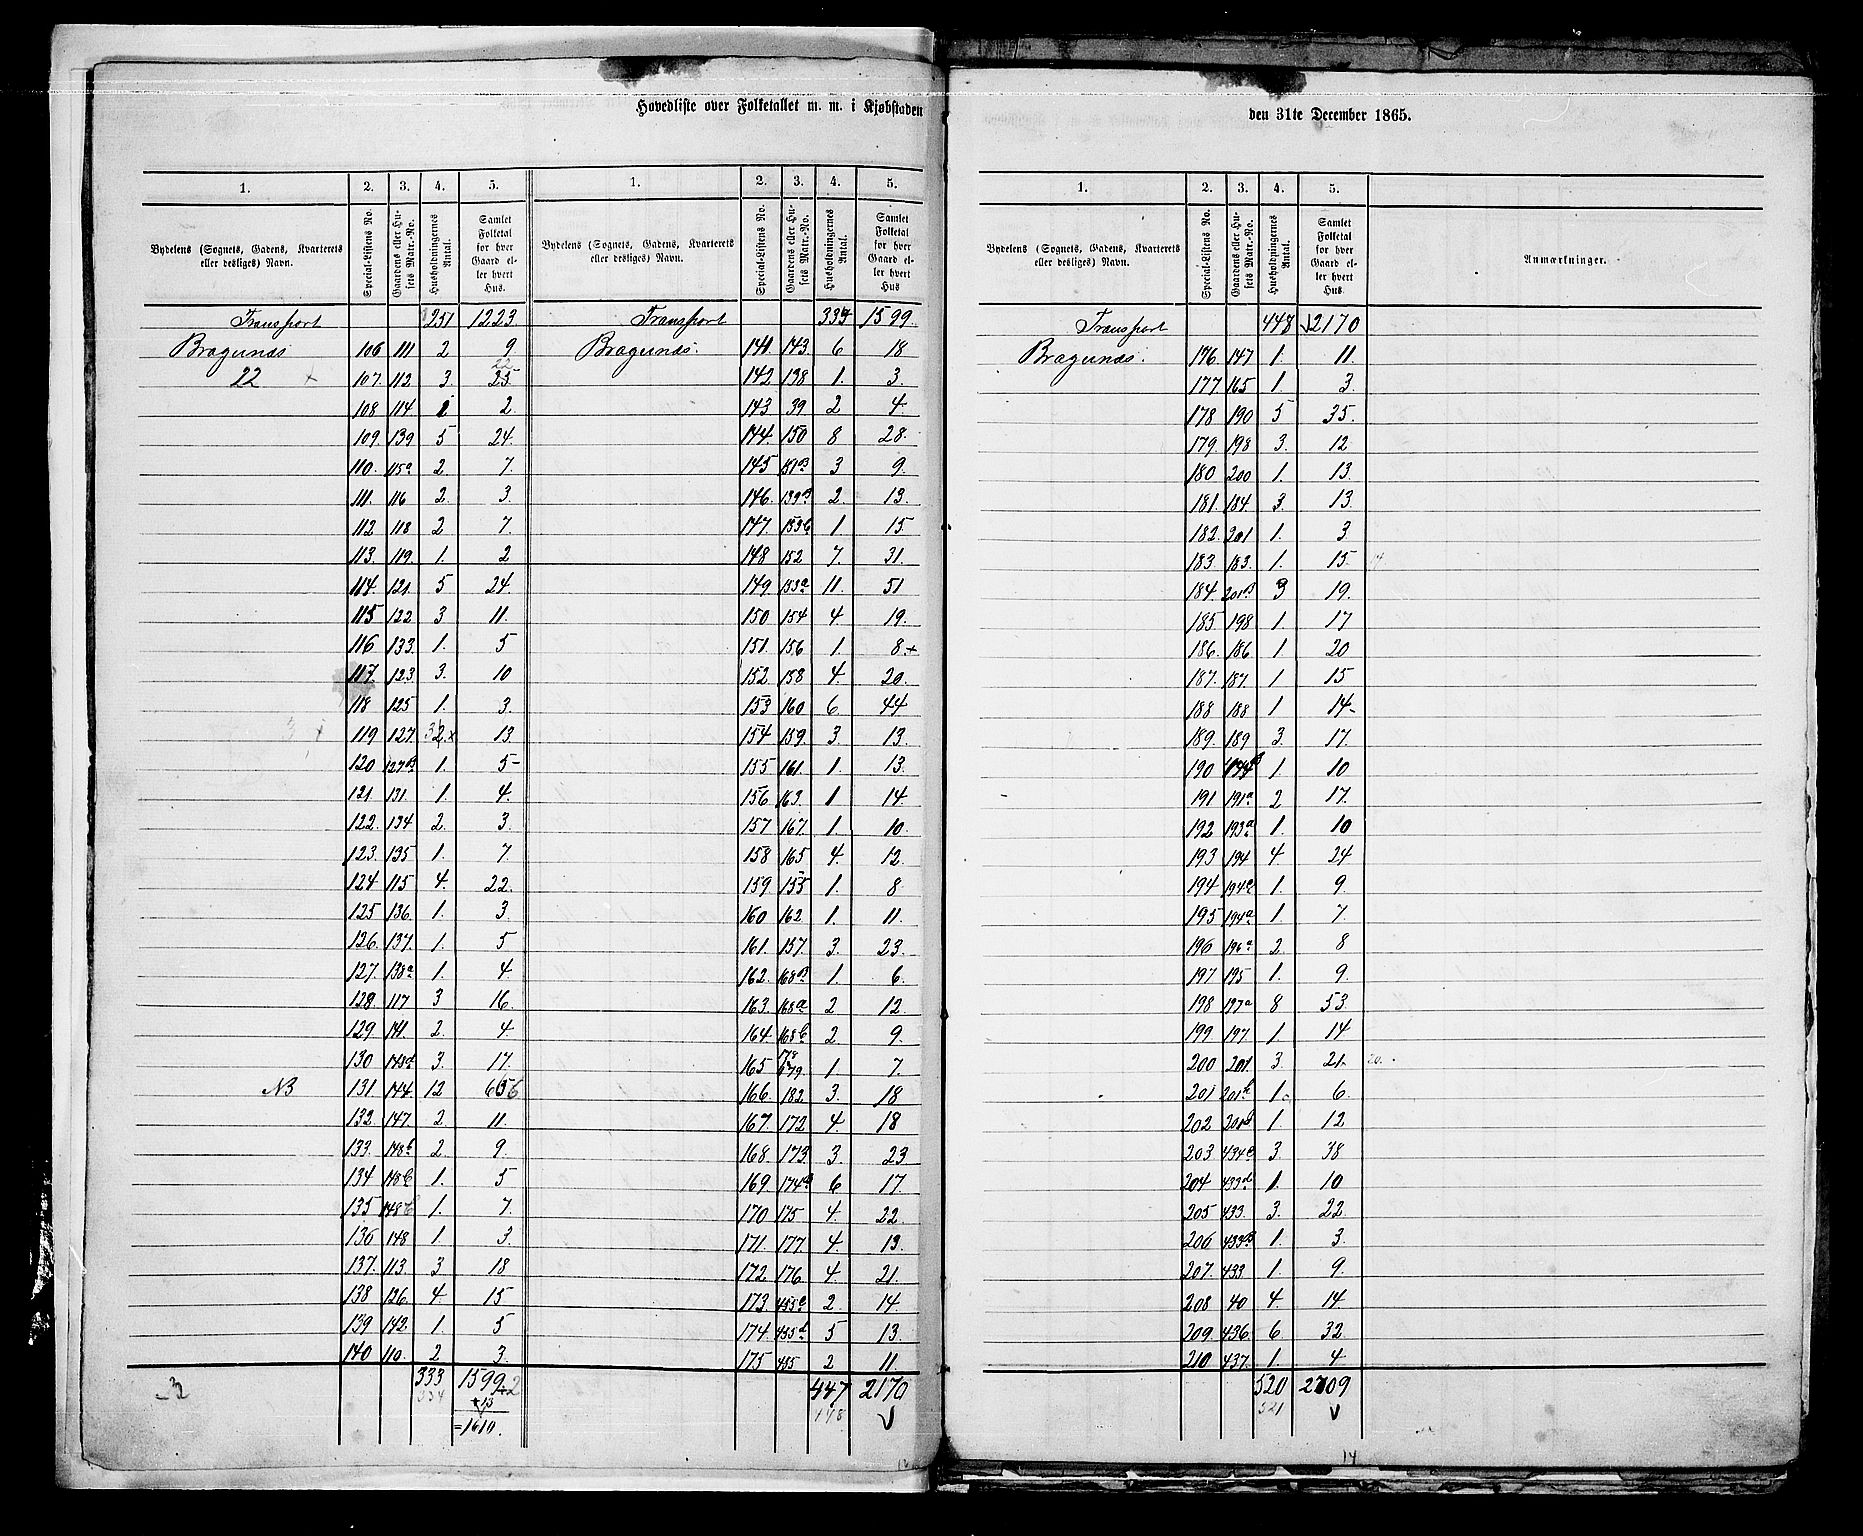 Hovedliste over Folketallet m. m. i Kjøbstaden
den 31te December 1865.
1. 2. 3. 4. 5. 1. 2. 3. 4. 5.
Bydelens (Sognets, Gadens, Kvarterets eller desliges) Navn. Special-Listens No. Gaardens eller Husets Matr.-No. Husholdningernes Antal. Samlet Folketal for hver Gaard eller hvert Hus. Bydelens (Sognets, Gadens, Kvarterets eller desliges) Navn. Special-Listens No. Gaardens eller Husets Matr.-No. Husholdningernes Antal. Samlet Folketal for hver Gaard eller hvert Hus
Transport 251 1223 Transport 334 1599.
Bragernæs 106 111 2 9 Bragernæs. 141. 143. 6 18
22 + 107. 112 3. 25 22 142 138 1. 3.
108 114 1 2. 143 39 2 4
109. 139 5 24. 144. 150 8 28.
110. 115a 2. 7. 145 151B 3 9.
111. 116 2. 3. 146. 139B 2. 13.
112 118 2 7. 147. 153b 1 15.
113. 119. 1. 2 148 152 7. 31.
114. 121. 5 24. 149. 153a 11. 51
115 122 3 11. 150 154 4 19.
116 133. 1. 5 151. 156 1. 8+
117. 123 3. 10 152. 158 4. 20.
118 125 1. 3. 153 160 6. 44
119 127. 32.x 13. 154 159. 3. 13.
120 127B 1. 5- 155. 161. 1. 13.
121. 131. 1. 4. 156. 163. 1 14.
122. 134 2. 3. 157 167. 1. 10.
123. 135 1. 7. 158 165 4. 12.
124 115 4. 22. 159. 155 1. 8
125 136. 1. 3 160 162 1. 11.
126. 137. 1. 5 161. 157 3. 23.
127. 138a 1. 4. 162. 168B 1. 6.
128. 117 3 16. 163. 168a 2 12.
129. 141. 2. 4. 164. 168b 2 9.
130 148d 3. 17. 165 178 179 1 7.
NB 131 144 12 6656 166. 182 3. 18
132. 147. 2 11. 167. 172 4. 18
133. 148b 2 9. 168. 173. 3. 23
134 1. 5 169 174B 6 17.
135 148b 1. 7. 170 175 4. 22
136 148 1 3. 171. 177. 4. 13.
137. 113. 3 18 172 176 4 21.
138 126. 4. 15 173. 455c 2. 14
139 142. 1. 5 174. 455d 5 13.
140 110. 2 3. 175 455 2 11.
333 1599 447 2170
334 +13 448 V
=1610.
1. 2. 3. 4. 5.
Bydelens (Sognets, Gadens, Kvarterets eller desliges) Navn. Special-Listens No. Gaardens eller Husets Matr.-No. Husholdningernes Antal. Samlet Folketal for hver Gaard eller hvert Hus. Anmærkninger.
Transport 448 2170
Bragernæs. 176. 147 1. 11.
177 165 1. 3.
178 190 5 35.
179. 198 3. 12
180 200 1. 13.
181. 184. 3. 13.
182. 201 1. 3
183. 183. 1. 15. 14.
184 201B 3 19.
185. 198 1. 17
186. 186. 1 20
187. 187. 1 15
188 188 1 14-
189. 189 3. 17.
190 1 10
191 191a 2 17.
192 193a 1. 10
193 194 4. 24
194 194c 1. 9.
195 194a 1 7.
196 196a 2. 8
197 195 1. 9.
198 197a 8 53.
199 197. 1 14
200 201. 3. 21. 20.
201 201b 1. 6.
202 201d 1. 12
203 434c 3. 38
204 433d 1. 10
205 433. 3. 22.
206 433B 1. 3.
207. 433 1. 9.
208 40 4. 14
209. 436. 6. 32.
210 437. 1. 4
520 2709
521 V
14